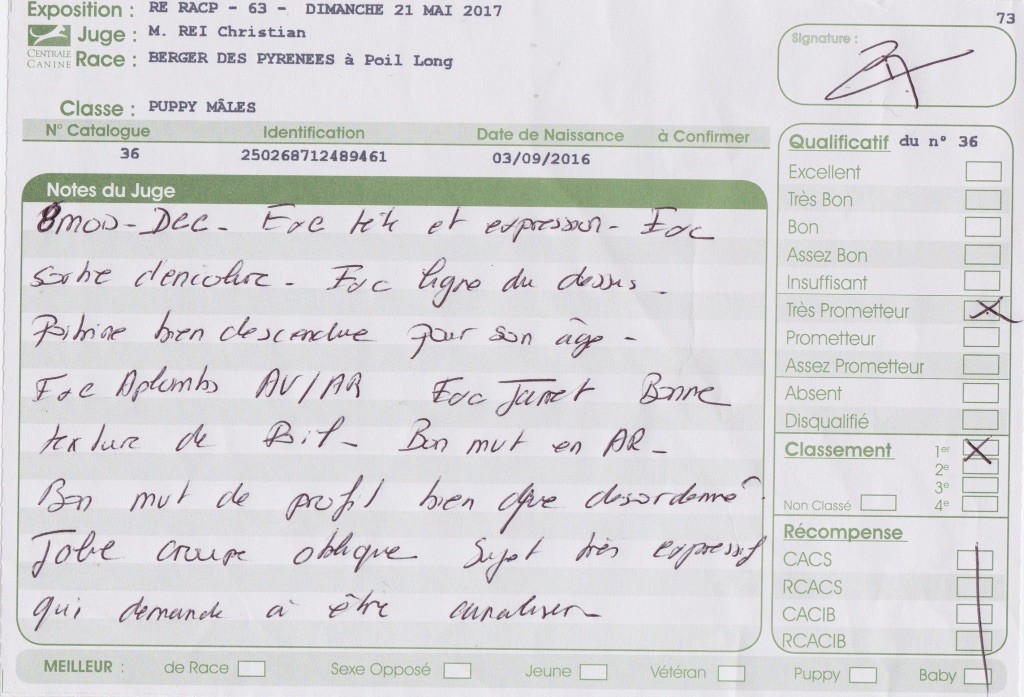 Exposition : RE RACP - 63 - DIMANCHE 21 MAI 2017
73
CENTRALE CANINE
Juge : M. REI Christian
Race : BERGER DES PYRENEES à Poil Long
Signature :
Classe : PUPPY MÂLES
N° Catalogue Identification Date de Naissance à Confirmer
36 250268712489461 03/09/2016
Notes du Juge
8 mois - DCC - Exc tête et expression - Exc
sortie d'encolure - Exc ligne du dessus -
Poitrine bien descendue pour son âge -
Exc Aplombs AV/AR Exc Jarret Bonne
texture de Poil - Bon mvt en AR -
Bon mvt de profil bien que désordonné
Jolie croupe oblique Sujet très expressif
qui demande à être canaliser -
Qualificatif du n° 36
Excellent
Très Bon
Bon
Assez Bon
Insuffisant
Très Prometteur X
Prometteur
Assez Prometteur
Absent
Disqualifié
Classement 1er X
2e
3e
Non Classé 4e
Récompense
CACS
RCACS
CACIB
RCACIB
MEILLEUR : de Race Sexe Opposé Jeune Vétéran Puppy Baby